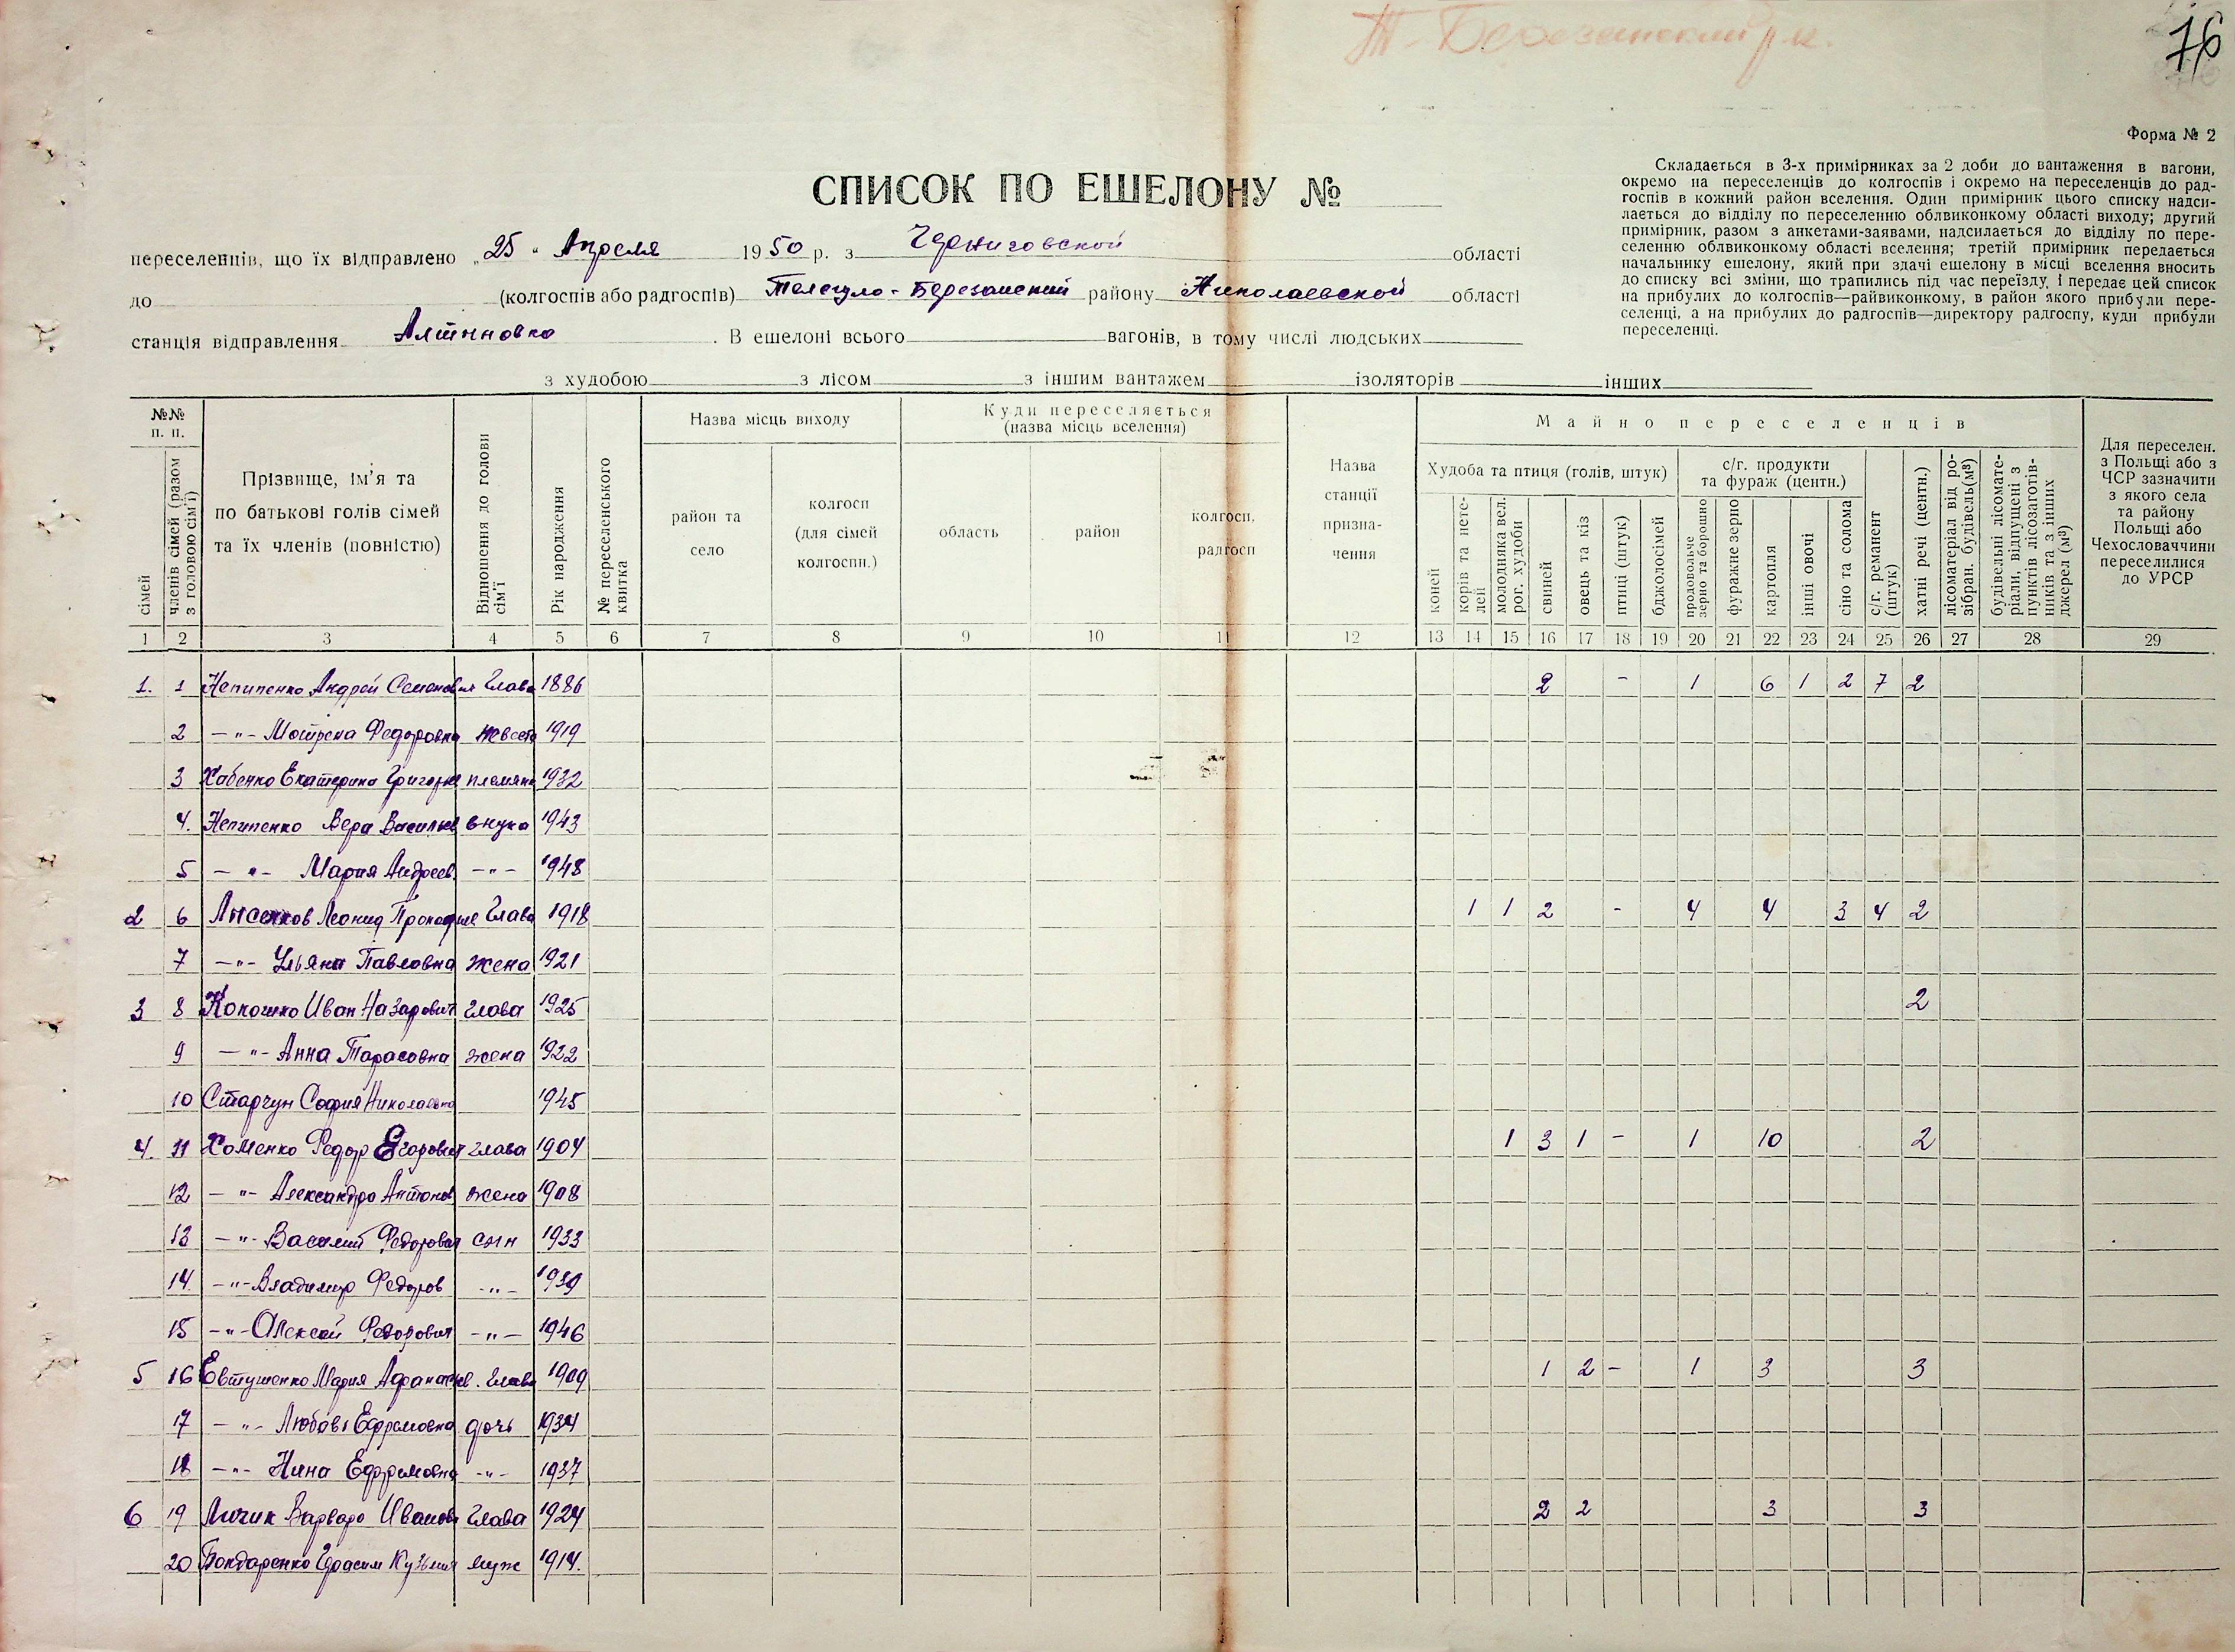 Т-Березанский р-н.
76
Форма № 2
Складається в 3-х примірниках за 2 доби до вантаження в вагони,
окремо на переселенців до колгоспів і окремо на переселенців до рад-
госпів в кожний район вселення. Один примірник цього списку надси-
лається до відділу по переселенню облвиконкому області виходу; другий
примірник, разом з анкетами-заявами, надсилається до відділу по пере-
селенню облвиконкому області вселення; третій примірник передається
начальнику ешелону, який при здачі ешелону в місці вселення вносить
до списку всі зміни, що трапились під час переїзду, і передає цей список
на прибулих до колгоспів—райвиконкому, в район якого прибули пере-
селенці, а на прибулих до радгоспів—директору радгоспу, куди прибули
переселенці.
СПИСОК ПО ЕШЕЛОНУ №
переселенців, що їх відправлено „25" Апреля 1950 р. з Черниговской області
до (колгоспів або радгоспів) Телегуло-Березанский району Николаевской області
станція відправлення Алтыновка. В ешелоні всього вагонів, в тому числі людських
з худобою з лісом з іншим вантажем ізоляторів інших
№№ п. п.
сімей
членів сімей (разом з головою сім'ї)
Прізвище, ім'я та по батькові голів сімей та їх членів (повністю)
Відношення до голови сім'ї
Рік народження
№ переселенського квитка
Назва місць виходу
район та село
колгосп (для сімей колгоспн.)
Куди переселяється (назва місць вселення)
область
район
колгосп, радгосп
Назва станції призначення
Майно переселенців
Худоба та птиця (голів, штук)
коней
корів та нетелей
молодняка вел. рог. худоби
свиней
овець та кіз
птиці (штук)
бджолосімей
с/г. продукти та фураж (центн.)
продовольче зерно та борошно
фуражне зерно
картопля
інші овочі
сіно та солома
с/г. реманент (штук)
хатні речі (центн.)
лісоматеріал від розібран. будівель (м³)
будівельні лісоматеріали, відпущені з пунктів лісозаготівників та з інших джерел (м³)
Для переселен. з Польщі або з ЧСР зазначити з якого села та району Польщі або Чехословаччини переселилися до УРСР
1 2 3 4 5 6 7 8 9 10 11 12 13 14 15 16 17 18 19 20 21 22 23 24 25 26 27 28 29
1. 1 Непипенко Андрей Семенович Глава 1886 2 - 1 6 1 2 7 2
2 -"- Мотрена Федоровна невест 1919
3 Хабенко Екатерина Григорье племян 1932
4. Непипенко Вера Васильев внука 1943
5 -"- Мария Андреев. -"- 1948
2 6 Лисенков Леонид Прокофие Глава 1918 1 1 2 - 4 4 3 4 2
7 -"- Ульяна Павловна жена 1921
3 8 Кокошко Иван Назарович глава 1925 2
9 -"- Анна Тарасовна жена 1922
10 Старчун София Николаевна 1945
4. 11 Хоменко Федор Егорович глава 1904 1 3 1 - 1 10 2
12 -"- Александра Антонов жена 1908
13 -"- Василий Федорович сын 1933
14. -"- Владимир Федоров -"- 1939
15 -"- Алексей Федорович -"- 1946
5 16 Евтушенко Мария Афанасьев. глава 1909 1 2 - 1 3 3
17 -"- Любовь Ефремовна дочь 1934
18 -"- Нина Ефремовна -"- 1937
6 19 Личик Варвара Иванов глава 1924 2 2 3 3
20 Бондаренко Герасим Кузьмич муж 1914.